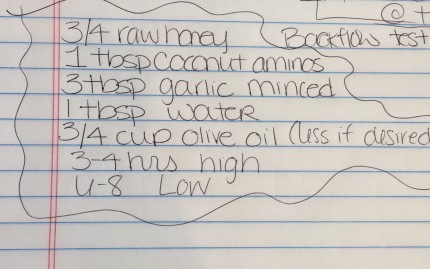 @ t
3/4 raw honey Backflow test
1 tbsp coconut aminos
3 tbsp garlic minced
1 tbsp water
3/4 cup olive oil (less if desired
3-4 hrs high
4-8 Low